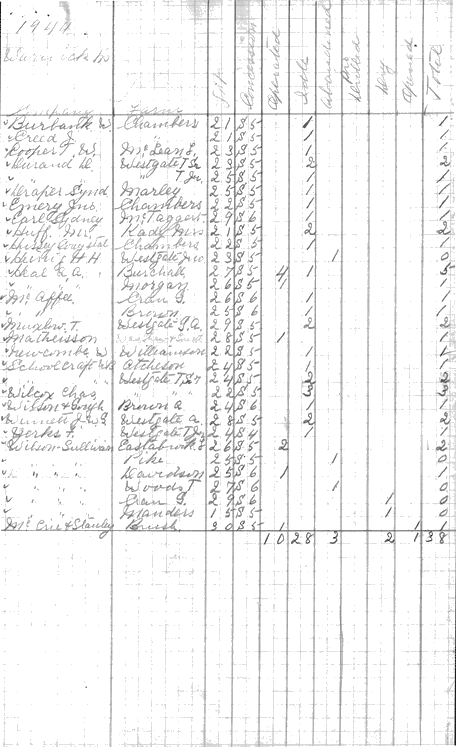 1944
Company Farm Lot Concession Operated Idle Abandoned Dry Opened Total
Burbank W. Chambers 21 S5 1 1
Creed J. " 21 S5 1 1
Cooper J W. McLean L. 23 S5 1 1
Durand D. Westgate T Sr 23 S5 2 2
" " " T Jr. 25 S5 1 1
Draper Synd Marley 21 S5 1 1
Emery Jno. Chambers 22 S5 1 1
Earl Sydney McTaggart 29 S6 1 1
Huff, Mr Kade Mrs 21 S5 2 2
Chambers 22 S5 1 1
H H Westgate Jno 23 S5 1 0
Neal E A. Burchall 27 S5 4 1 5
" " " Morgan 26 S5 1 1
McAffee Cran G. 26 S6 1 1
" Brown 25 S6 1 1
Muxlow T. Westgate S.A. 29 S5 2 2
Mathewson 28 S5 1 1
Newcombe W Williamson 22 S5 1 1
Schoolcraft Atcheson 24 S5 1 1
" " Westgate T Sr 24 S5 2 2
Wilcox Chas " " 22 S5 3 3
Wilson & Brown A 24 S6 1 1
Winnett J. Westgate A. 28 S5 2 2
Yerks F. Westgate T Jr 24 S4 1 1
Wilson-Sullivan Eastabrook 26 S5 2 2
" " " Pike 25 S5 1 0
" " " Davidson 25 S6 1 1
" " " Woods T 27 S6 1 0
" " " Cran G. 29 S6 1 0
" " " Manders 15 S5 1 0
McCrie & Stanley Brush 30 S5 1 1 1
10 28 3 2 1 38